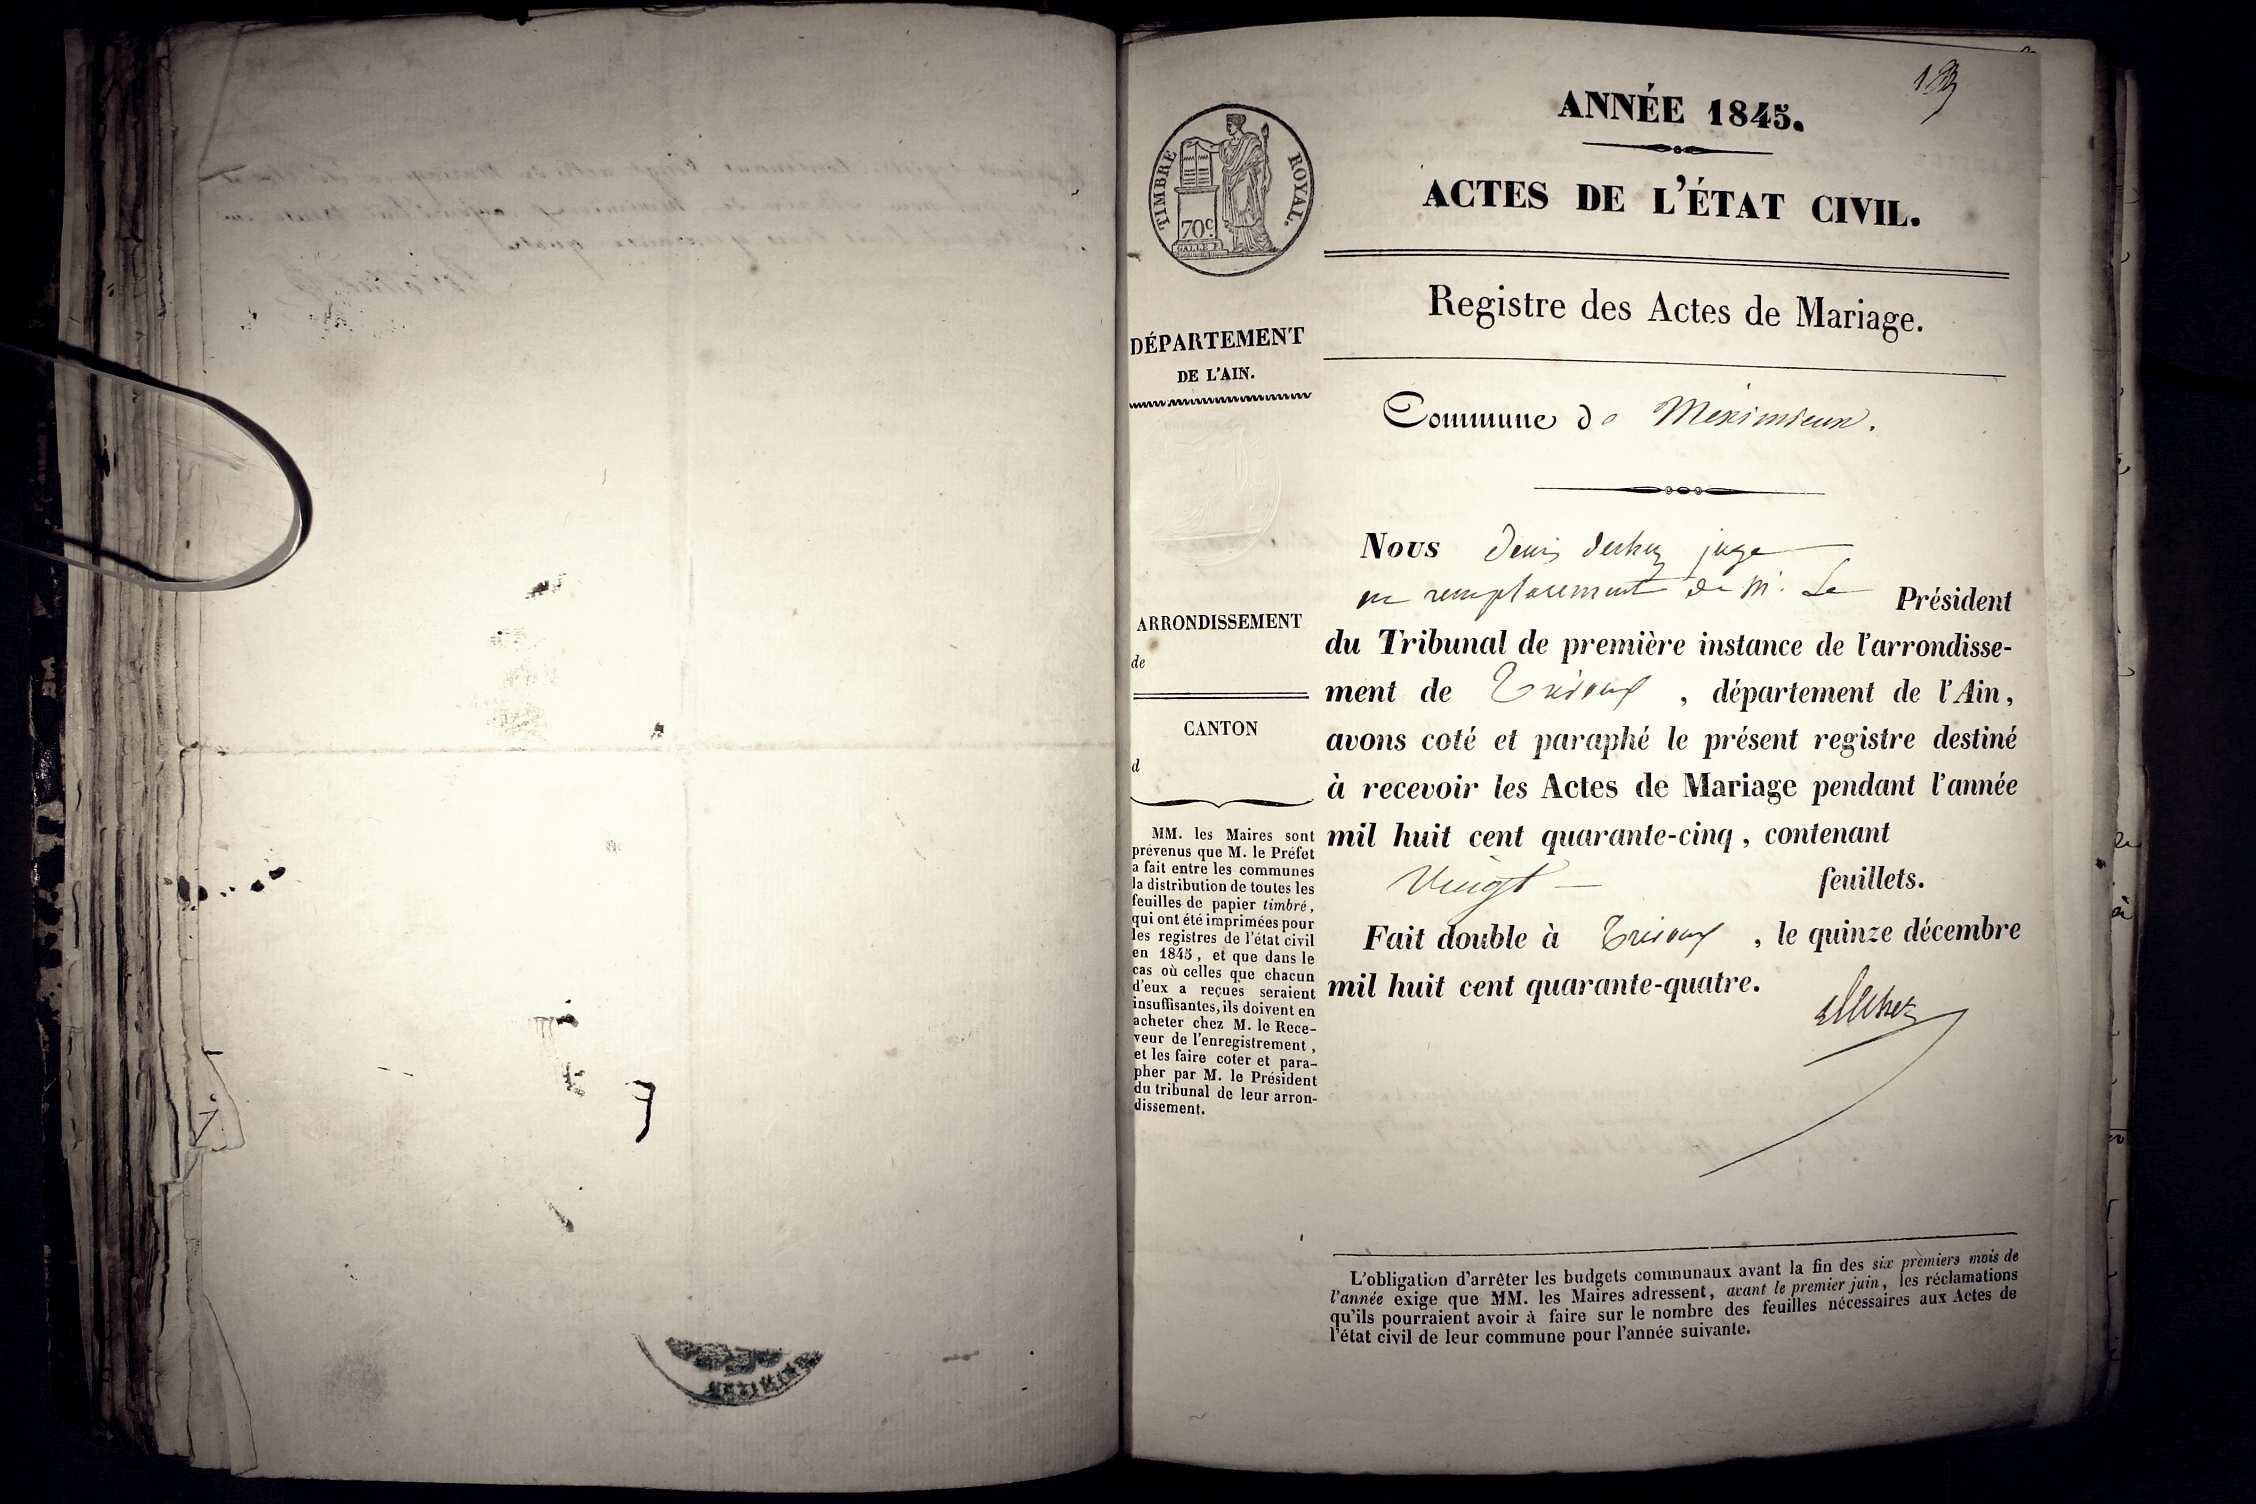 ANNÉE 1845.
ACTES DE L'ÉTAT CIVIL.
Registre des Actes de Mariage.
TIMBRE ROYAL.
70c.
DÉPARTEMENT
DE L'AIN.
Commune de Meximieux.
Nous Denis juge
en remplacement de M. Le Président
du Tribunal de première instance de l'arrondisse-
ment de Trévoux, département de l'Ain,
avons coté et paraphé le présent registre destiné
à recevoir les Actes de Mariage pendant l'année
mil huit cent quarante-cinq, contenant
Vingt — feuillets.
Fait double à Trévoux, le quinze décembre
mil huit cent quarante-quatre.
ARRONDISSEMENT
de
CANTON
d
MM. les Maires sont
prévenus que M. le Préfet
a fait entre les communes
la distribution de toutes les
feuilles de papier timbré,
qui ont été imprimées pour
les registres de l'état civil
en 1845, et que dans le
cas où celles que chacun
d'eux a reçues seraient
insuffisantes, ils doivent en
acheter chez M. le Rece-
veur de l'enregistrement,
et les faire coter et para-
pher par M. le Président
du tribunal de leur arron-
dissement.
L'obligation d'arrêter les budgets communaux avant la fin des six premiers mois de
l'année exige que MM. les Maires adressent, avant le premier juin, les réclamations
qu'ils pourraient avoir à faire sur le nombre des feuilles nécessaires aux Actes de
l'état civil de leur commune pour l'année suivante.